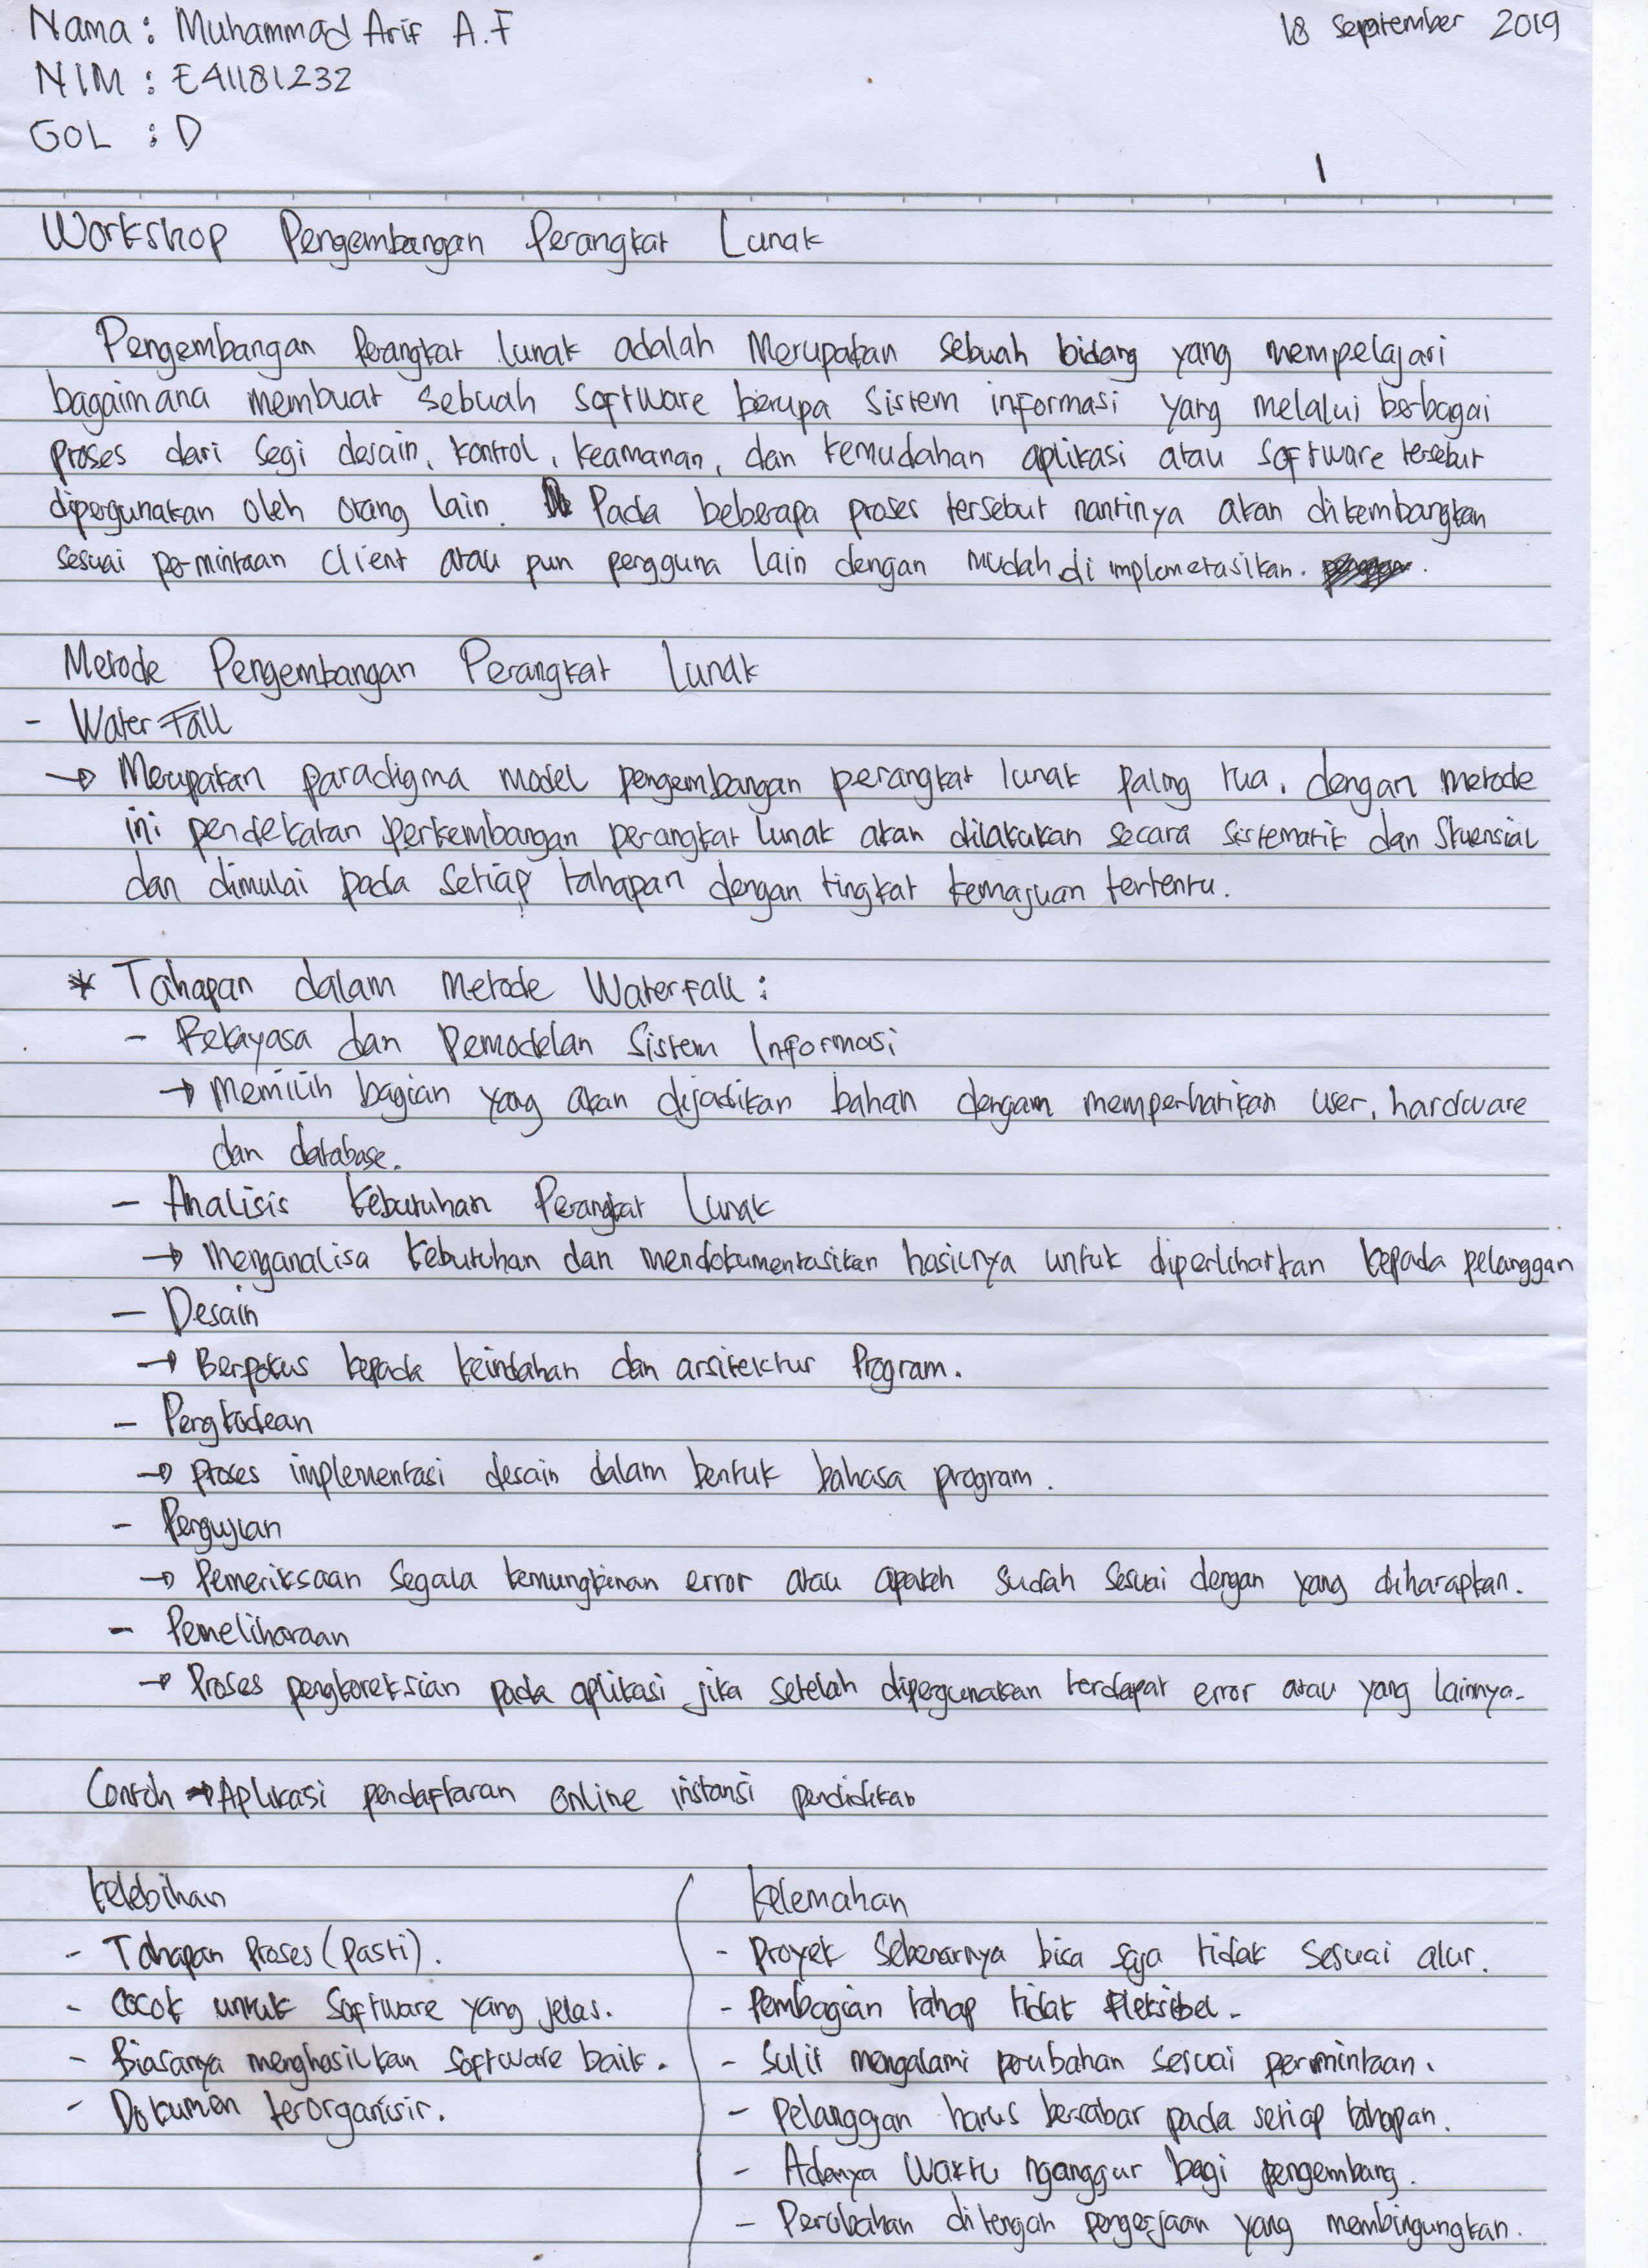 Nama : Muhammad Arif A.F
18 September 2019
NIM : E41181232
GOL : D
1
Workshop Pengembangan Perangkat Lunak
Pengembangan Perangkat lunak adalah Merupakan sebuah bidang yang mempelajari
bagaimana membuat sebuah software berupa sistem informasi yang melalui berbagai
proses dari segi desain, kontrol, keamanan, dan kemudahan aplikasi atau software tersebut
dipergunakan oleh orang lain. Pada beberapa proses tersebut nantinya akan dikembangkan
sesuai permintaan client atau pun pengguna lain dengan mudah di implemetasikan.
Metode Pengembangan Perangkat Lunak
- Water Fall
→ Merupakan paradigma model pengembangan perangkat lunak paling tua, dengan metode
ini pendekatan perkembangan perangkat lunak akan dilakukan secara sistematik dan Skuensial
dan dimulai pada setiap tahapan dengan tingkat kemajuan tertentu.
* Tahapan dalam Metode Waterfall :
- Rekayasa dan Pemodelan Sistem Informasi
→ Memilih bagian yang akan dijadikan bahan dengam memperhatikan user, hardware
dan database.
- Analisis kebutuhan Perangkat Lunak
→ Menganalisa kebutuhan dan mendokumentasikan hasilnya untuk diperlihatkan kepada pelanggan
- Desain
→ Berfokus kepada keindahan dan arsitektur Program.
- Pengkodean
→ Proses implementasi desain dalam bentuk bahasa program.
- Pengujian
→ Pemeriksaan segala kemungkinan error atau apakah sudah sesuai dengan yang diharapkan.
- Pemeliharaan
→ Proses pengkoreksian pada aplikasi jika setelah dipergunakan terdapat error atau yang lainnya.
Contoh → Aplikasi pendaftaran online instansi pendidikan
Kelebihan
- Tahapan Proses (Pasti).
- Cocok untuk Software yang jelas.
- Biasanya menghasilkan software baik.
- Dokumen terorganisir.
Kelemahan
- Proyek Sebenarnya bisa saja tidak sesuai alur.
- Pembagian tahap tidak Fleksibel.
- Sulit mengalami perubahan sesuai permintaan.
- Pelanggan harus bersabar pada setiap tahapan.
- Adanya Waktu nganggur bagi pengembang.
- Perubahan ditengah pengerjaan yang membingungkan.